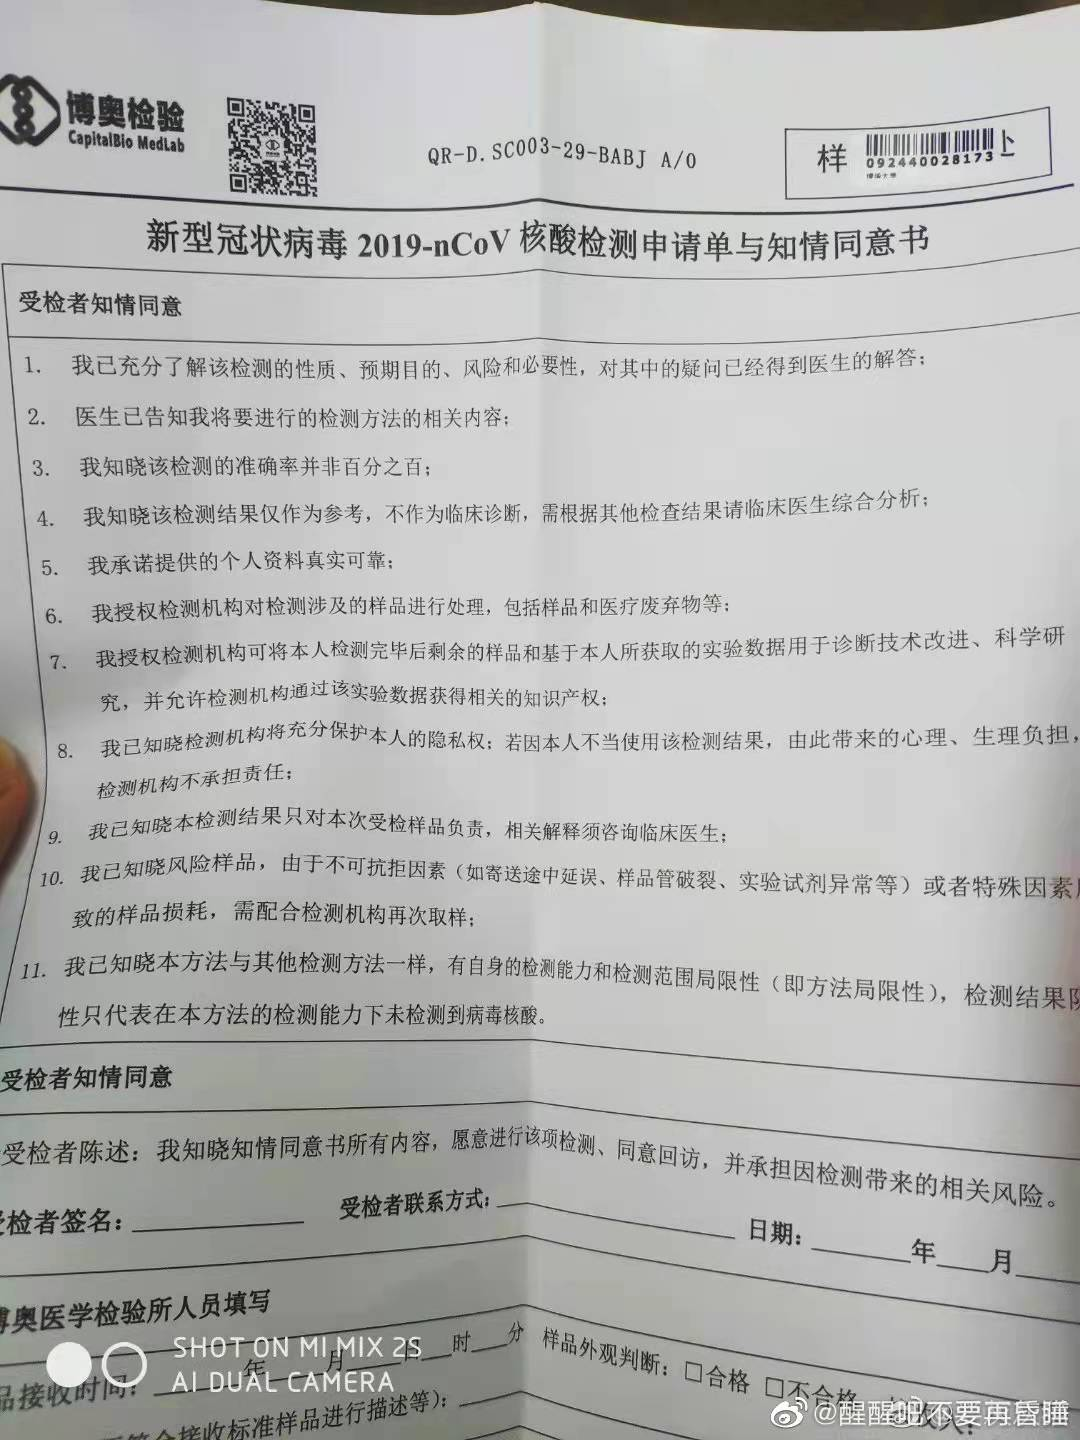 博奥检验
CapitalBio MedLab
QR-D.SC003-29-BABJ A/0
样
092440028173
新型冠状病毒 2019-nCoV 核酸检测申请单与知情同意书
受检者知情同意
1. 我已充分了解该检测的性质、预期目的、风险和必要性，对其中的疑问已经得到医生的解答；
2. 医生已告知我将要进行的检测方法的相关内容；
3. 我知晓该检测的准确率并非百分之百；
4. 我知晓该检测结果仅作为参考，不作为临床诊断，需根据其他检查结果请临床医生综合分析；
5. 我承诺提供的个人资料真实可靠；
6. 我授权检测机构对检测涉及的样品进行处理，包括样品和医疗废弃物等；
7. 我授权检测机构可将本人检测完毕后剩余的样品和基于本人所获取的实验数据用于诊断技术改进、科学研
究，并允许检测机构通过该实验数据获得相关的知识产权；
8. 我已知晓检测机构将充分保护本人的隐私权；若因本人不当使用该检测结果，由此带来的心理、生理负担，
检测机构不承担责任；
9. 我已知晓本检测结果只对本次受检样品负责，相关解释须咨询临床医生；
10. 我已知晓风险样品，由于不可抗拒因素（如寄送途中延误、样品管破裂、实验试剂异常等）或者特殊因素
致的样品损耗，需配合检测机构再次取样；
11. 我已知晓本方法与其他检测方法一样，有自身的检测能力和检测范围局限性（即方法局限性），检测结果阴
性只代表在本方法的检测能力下未检测到病毒核酸。
受检者知情同意
受检者陈述：我知晓知情同意书所有内容，愿意进行该项检测、同意回访，并承担因检测带来的相关风险。
受检者签名：________ 受检者联系方式：________ 日期：____年___月___
博奥医学检验所人员填写
品接收时间：____年___月___日___时___分 样品外观判断：□合格 □不合格
合接收标准样品进行描述等）：
SHOT ON MI MIX 2S
AI DUAL CAMERA
@醒醒吧不要再昏睡